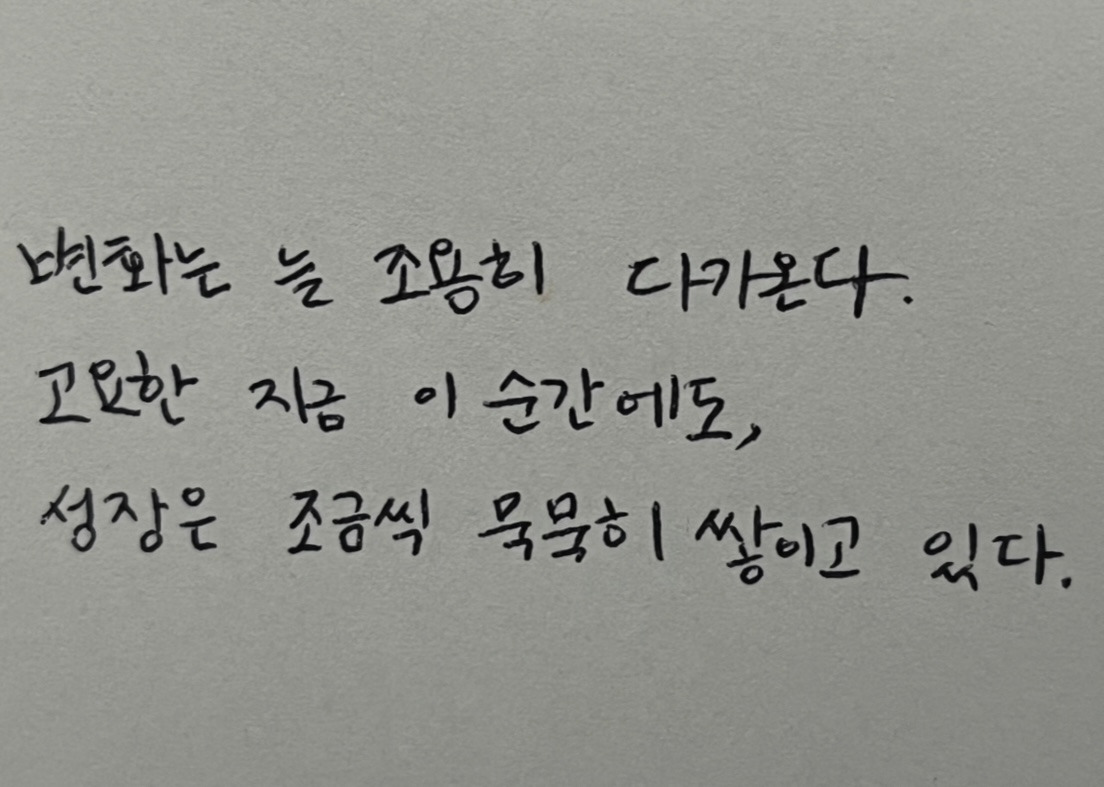 변화는 늘 조용히 다가온다.
고요한 지금 이 순간에도,
성장은 조금씩 묵묵히 쌓이고 있다.